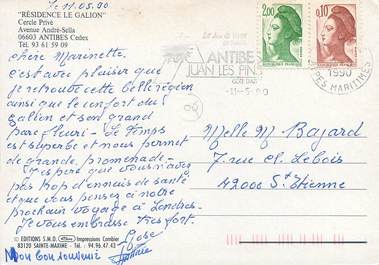 le 11.05.90
"RÉSIDENCE LE GALION"
Cercle Privé
Avenue André-Sella
06603 ANTIBES Cedex
Tél. 93 61 59 09
Chère Marinette.
c'est avec plaisir que
je retrouve cette belle région
ainsi que le confort du
Galion et son grand
parc fleuri - Le Temps
est superbe et nous permet
de grandes promenades -
J'espère que vous n'avez
pas trop d'ennuis de santé
et que vous pensez à notre
prochain voyage à Londres.
Je vous embrasse très fort.
Mon bon souvenir
© EDITIONS S.M.D. Impressions Combier
83120 SAINTE-MAXIME Tél. 94.96.47.43
2,00
0,10
ANTIBES
JUAN LES PINS
CÔTE D'AZUR
1990
ALPES MARITIMES
-11-5-90
Melle M. Bajard
7 rue cl. Lebois
42000 St Etienne